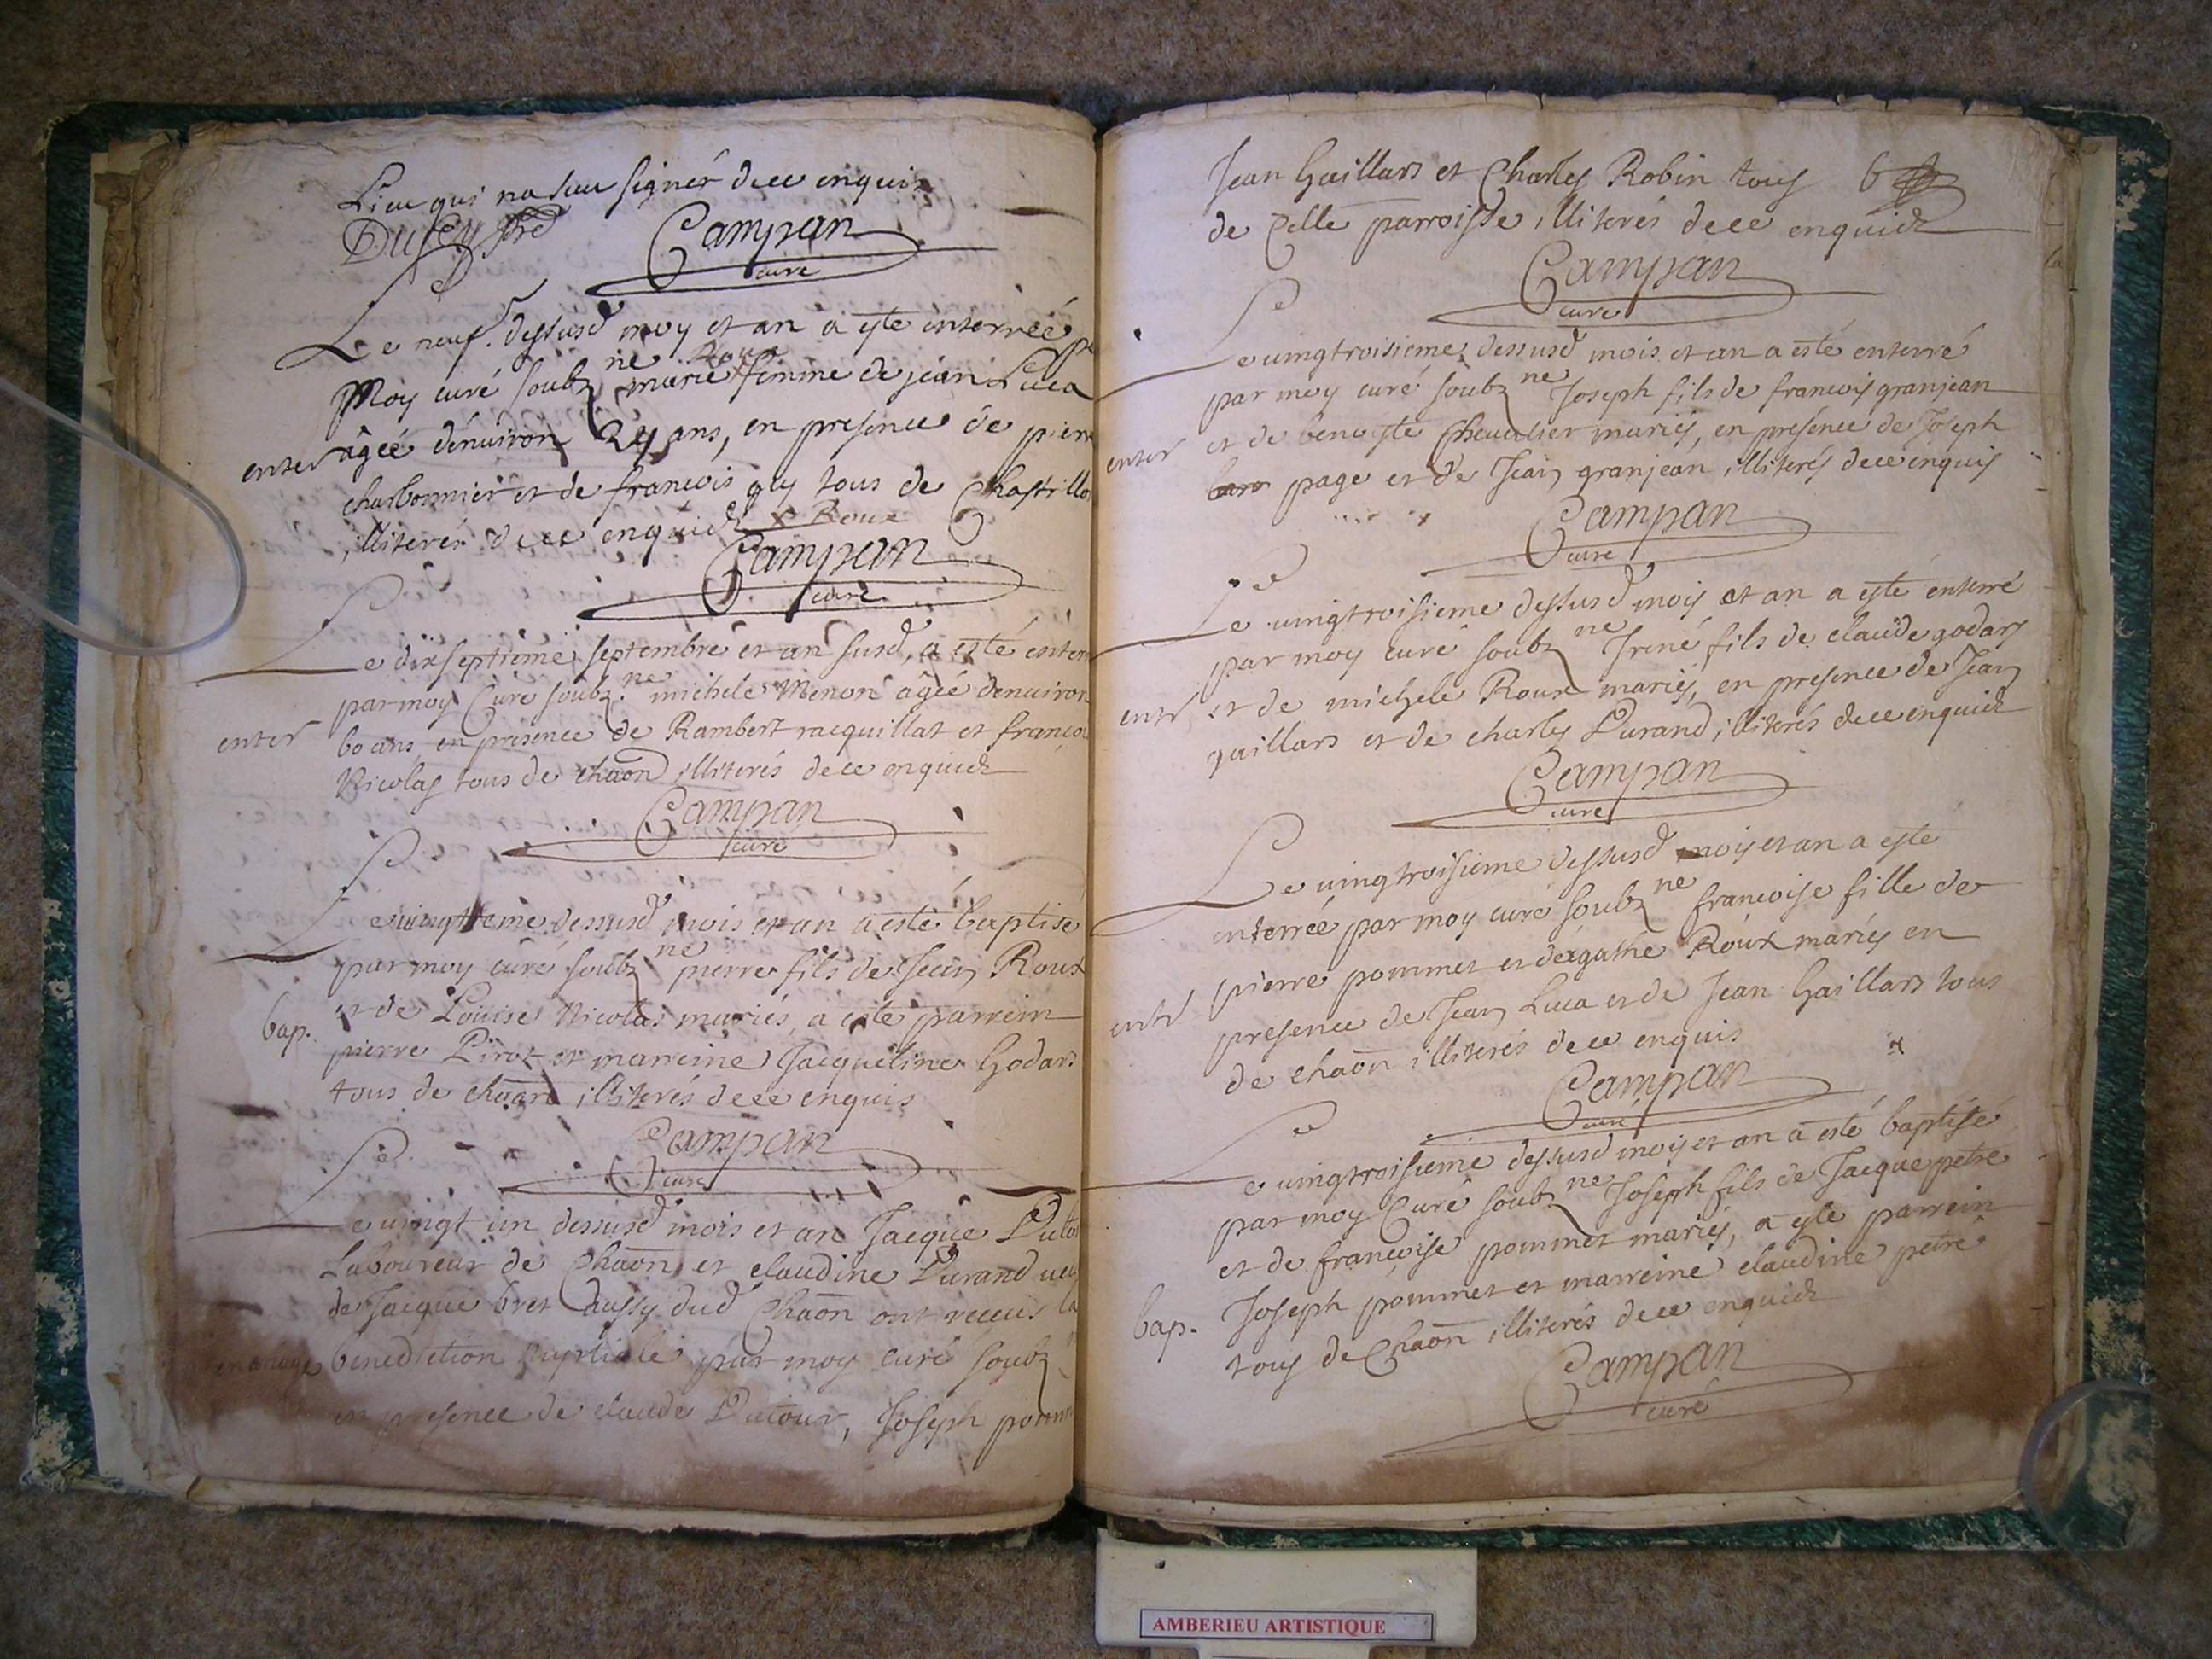 Lieu qui na sceu signér de ce enquis
Campan
curé
Le neuf dessusd moy et an a esté enterréé
Roux
Moy curé soubz ne marie femme de jean Luca
enter âgéé dénuiron 24 ans, en presence de pierre
charbonnier et de francois guy tous de Chastillon
illiterés de ce enquid
x Roux
Campan
curé
Le dixseptieme septembre et an susd, a esté enter
par moy Curé soubz ne michele Menon âgéé denuiron
enter 60 ans, en présence de Rambert racquillat et francoi
Nicolas tous de chaon illiterés de ce enquidz
Campan
curé
Le uingtieme dessusd mois et an a esté baptisé
par moy curé soubz ne pierre fils de Jean Roux
bap. et de Louise Nicolas mariés, a esté parrein
pierre Pirot et marreine Jacqueline Godard
tous de chaon illiterés de ce enquis
Campan
curé
Le uingt un dessusd mois et an Jacque Dutou
Laboureur de Chaon et claudine Durand ueu
de Jacque bret aussy dud Chaon ont receus la
mariage benediction nuptiale par moy curé soubz
en presence de claude Dutour, Joseph pomm
Jean Gaillard et Charles Robin tous 6
de Celle parroisse illiterés de ce enquidz
Campan
curé
Le uingtroisieme dessusd mois et an a esté enterré
par moy curé soubz ne Joseph fils de francois granjean
enter et de benoiste Cheualier mariés, en présence de Joseph
page et de Jean granjean illiterés de ce enquis
Campan
curé
Le uingtroisieme dessusd mois et an a esté enterré
par moy curé soubz ne Irené fils de claude godard
entr et de michele Roux mariés, en presence de Jean
gaillard et de charles Durand illiterés de ce enquidz
Campan
curé
Le uingtroisieme dessusd mois et an a esté
enterréé par moy curé soubz ne francoise fille de
pierre pommet et dégathe Roux mariés en
entr presence de Jean Luca et de Jean Gaillard tous
de chaon illiterés de ce enquis
Campan
curé
Le uingtroisieme dessusd mois et an a esté baptisé
par moy Curé soubz ne Joseph fils de Jacque petre
et de francoise pommet mariés, a esté parrein
bap. Joseph pommet et marreine claudine petre
tous de Chaon illiterés de ce enquidz
Campan
curé
AMBERIEU ARTISTIQUE